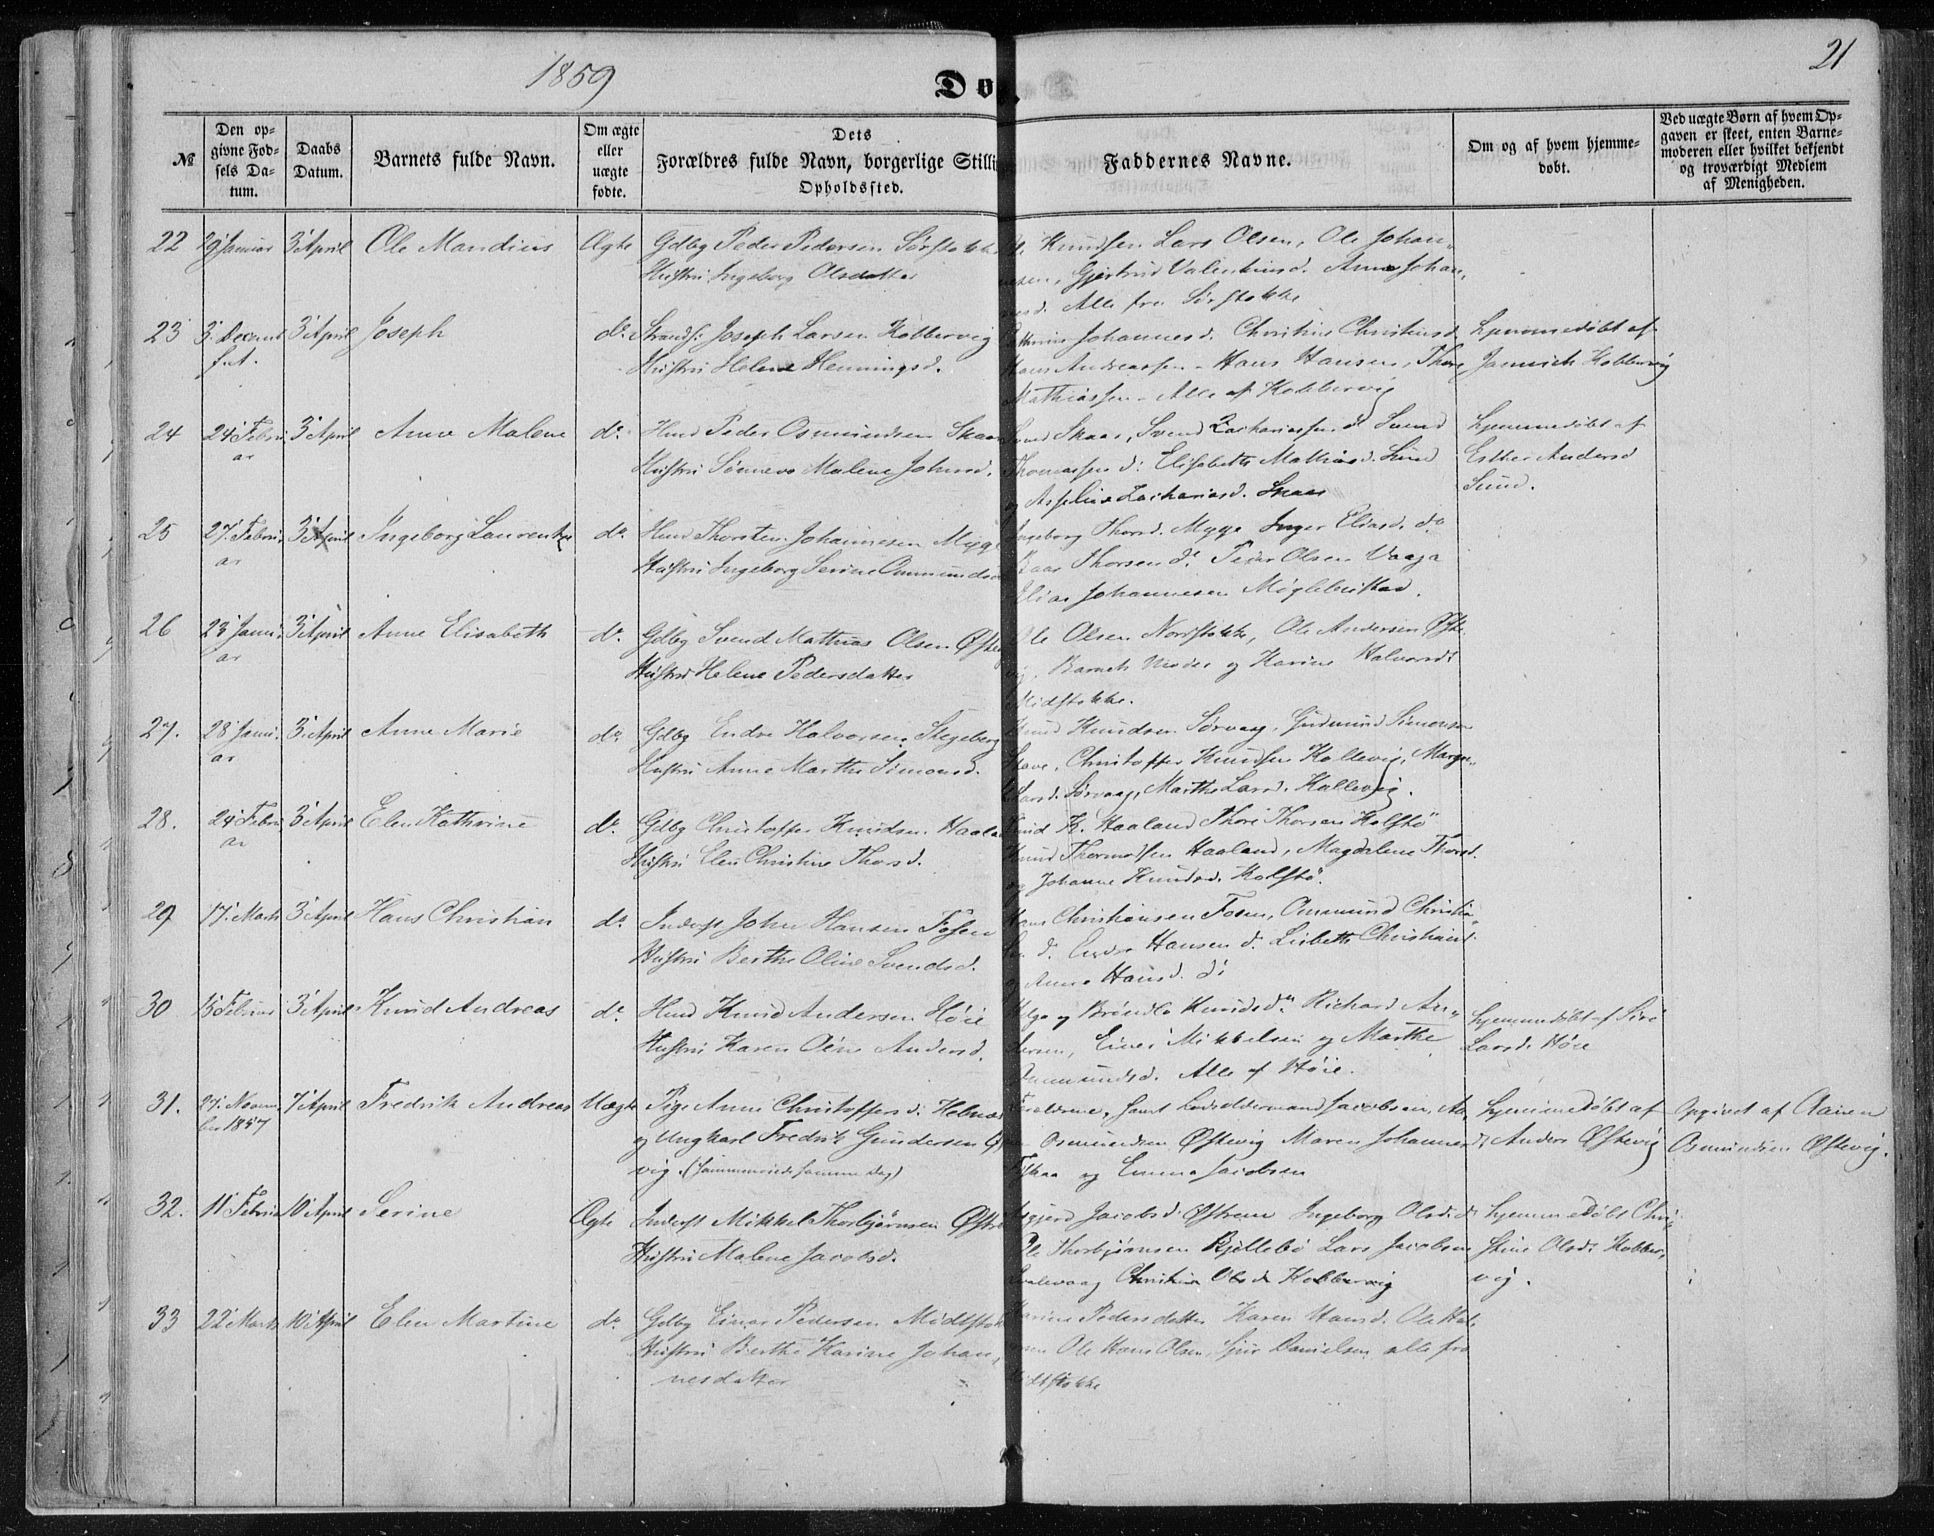 1859
21
Døb
№
Den opgivne Fodsels Datum.
Daabs Datum.
Barnets fulde Navn.
Om ægte eller uægte fodte.
Dets Forældres fulde Navn, borgerlige Stilli Opholdssted.
Faddernes Navne.
Om og af hvem hjemmedobt.
Ved uægte Børn af hvem Opgaven er skeet, enten Barnemoderen eller hvilket bekjendt og troværdigt Medlem af Menigheden.
22 29 Januar 3 April Ole Mandius Ægte Gdbg Peder Pedersen Sørstokke
Hustru Ingeborg Olsdatter
Knudsen Lars Olsen, Ole Johan-
sen, Gjertrud Valentinsd. Anne Johan-
Alle fra Sørstokke
23 3 Decemb 3 April Joseph do Strands. Joseph Larsen Kobbervig
f.A.
Hustru Helene Henningsd.
Johannesd. Christine Christensd
Hans Andreassen - Hans Hansen, Thore
Mathiassen - Alle af Kobbervig
hjemmedøbt af
Jannich Kobbervig
24 24 Febru 3 April Anne Malene do Huusm Peder Osmundsen Skaar
ar
Hustru Malene Johnsd.
Skaar, Svend Zachariassen do Svend
Thomassen do Elisabeth Mathiasd. Sund
Zachariasd. Skaar
hjemmedøbt af
Esther Andersd
Sund.
25 27 Febru 3 April Ingeborg Laurentze do Huusm Thorsten Johannesen Myge
ar
Hustru Ingeborg Serine Ommundsd
Ingeborg Thorsd. Myge Inger Eliasd. do
Thorsen do Peder Olsen Vaaga
Elias Johannesen Møglebustad.
26 23 Janu 3 April Anne Elisabeth do Gdbg Svend Mathias Olsen Øste
ar
Hustru Helene Pedersdatter
Ole Olsen Nordstokke, Ole Andersen Øste
vig. Barnets Moder og Karine Halvorsd
Midstokke.
27. 28 Janu 3 April Anne Marie do Gdbg Endre Halvorsen Stegeberg
ar
Hustru Anne Marthe Simonsd.
Knud Knudsen Sørvaag, Gudmund Simonsen
Stave, Christoffer Knudsen Kallevig, Marga-
Larsd. Sørvaag, Marthe Larsd. Kallevig.
28. 24 Febru 3 April Elen Kathrine do Gdbg Christoffer Knudsen Haala
ar
Hustru Elen Christine Thorsd.
Knud K. Haaland Thore Thorsen Kolstø
Knud Thormodsen Haaland, Magdalene Thorsd.
og Johanne Knudsd. Kolstø.
29 17 Marts 3 April Hans Christian do Inderst John Hansen Fosen
Hustru Berthe Oline Svendsd.
Hans Christiansen Fosen, Ommund Christia
sen do Hansen do Lisbeth Christiansd
og Anna Hansd. do
30 15 Februar 3 April Knud Andreas do Huusm Knud Andersen Høie
Hustru Karen Andersd.
Helga og Brønla Knudsd. Richard An-
dersen, Einer Mikkelsen og Marthe
Ommundsd. Alle af Høie.
hjemmedøbt af Siri
Larsd. Høie
31. 27 Novem 7 April Fredrik Andreas Uægte Pige Anne Christoffersd. Helnæs
ber 1857
og Ungkarl Fredrik Gundersen Ø
vig. (sammenviede samme Dag)
Forældrene, samt Jacobsen, Aa
Osmundsen Østevig Maren Johannesd
og Emma Jacobsen
hjemmedøbt af
Anders Østevig
Opgivet af Aanen
Osmundsen Østevig.
32. 11 Februa 10 April Serine Ægte Inderst Mikkel Thorbjørnsen Østre
Hustru Malene Jacobsd.
Jacobsd. Østrem Ingeborg Olsd. do
Ole Thorbjørnsen Bjellebø Lars Jacobsen
Christine Olsd. Kobbervig
hjemmedøbt Chri-
stine Olsd. Kobber-
vig.
33 22 Marts 10 April Elen Martine do Gdbg Einar Pedersen Midtstok
Hustru Berthe Karine Johan-
nesdatter
Karine Pedersdatter Karen Hansd. Ole Hal-
Ole Hans Olsen, Sjur Danielsen alle fra
Midtstokke